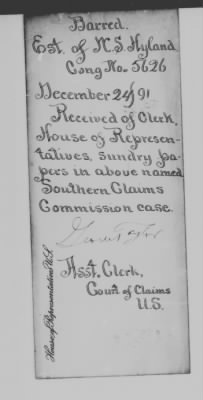 Barred.
Est. of N. S. Hyland
Cong No. 5626
December 24/91
Received of Clerk,
House of Represen-
tatives, sundry pa-
pers in above named
Southern Claims
Commission case.
Asst. Clerk,
Court of Claims
U.S.
House of Representatives U.S.